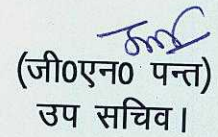 (जी0एन0 पन्त)
उप सचिव।